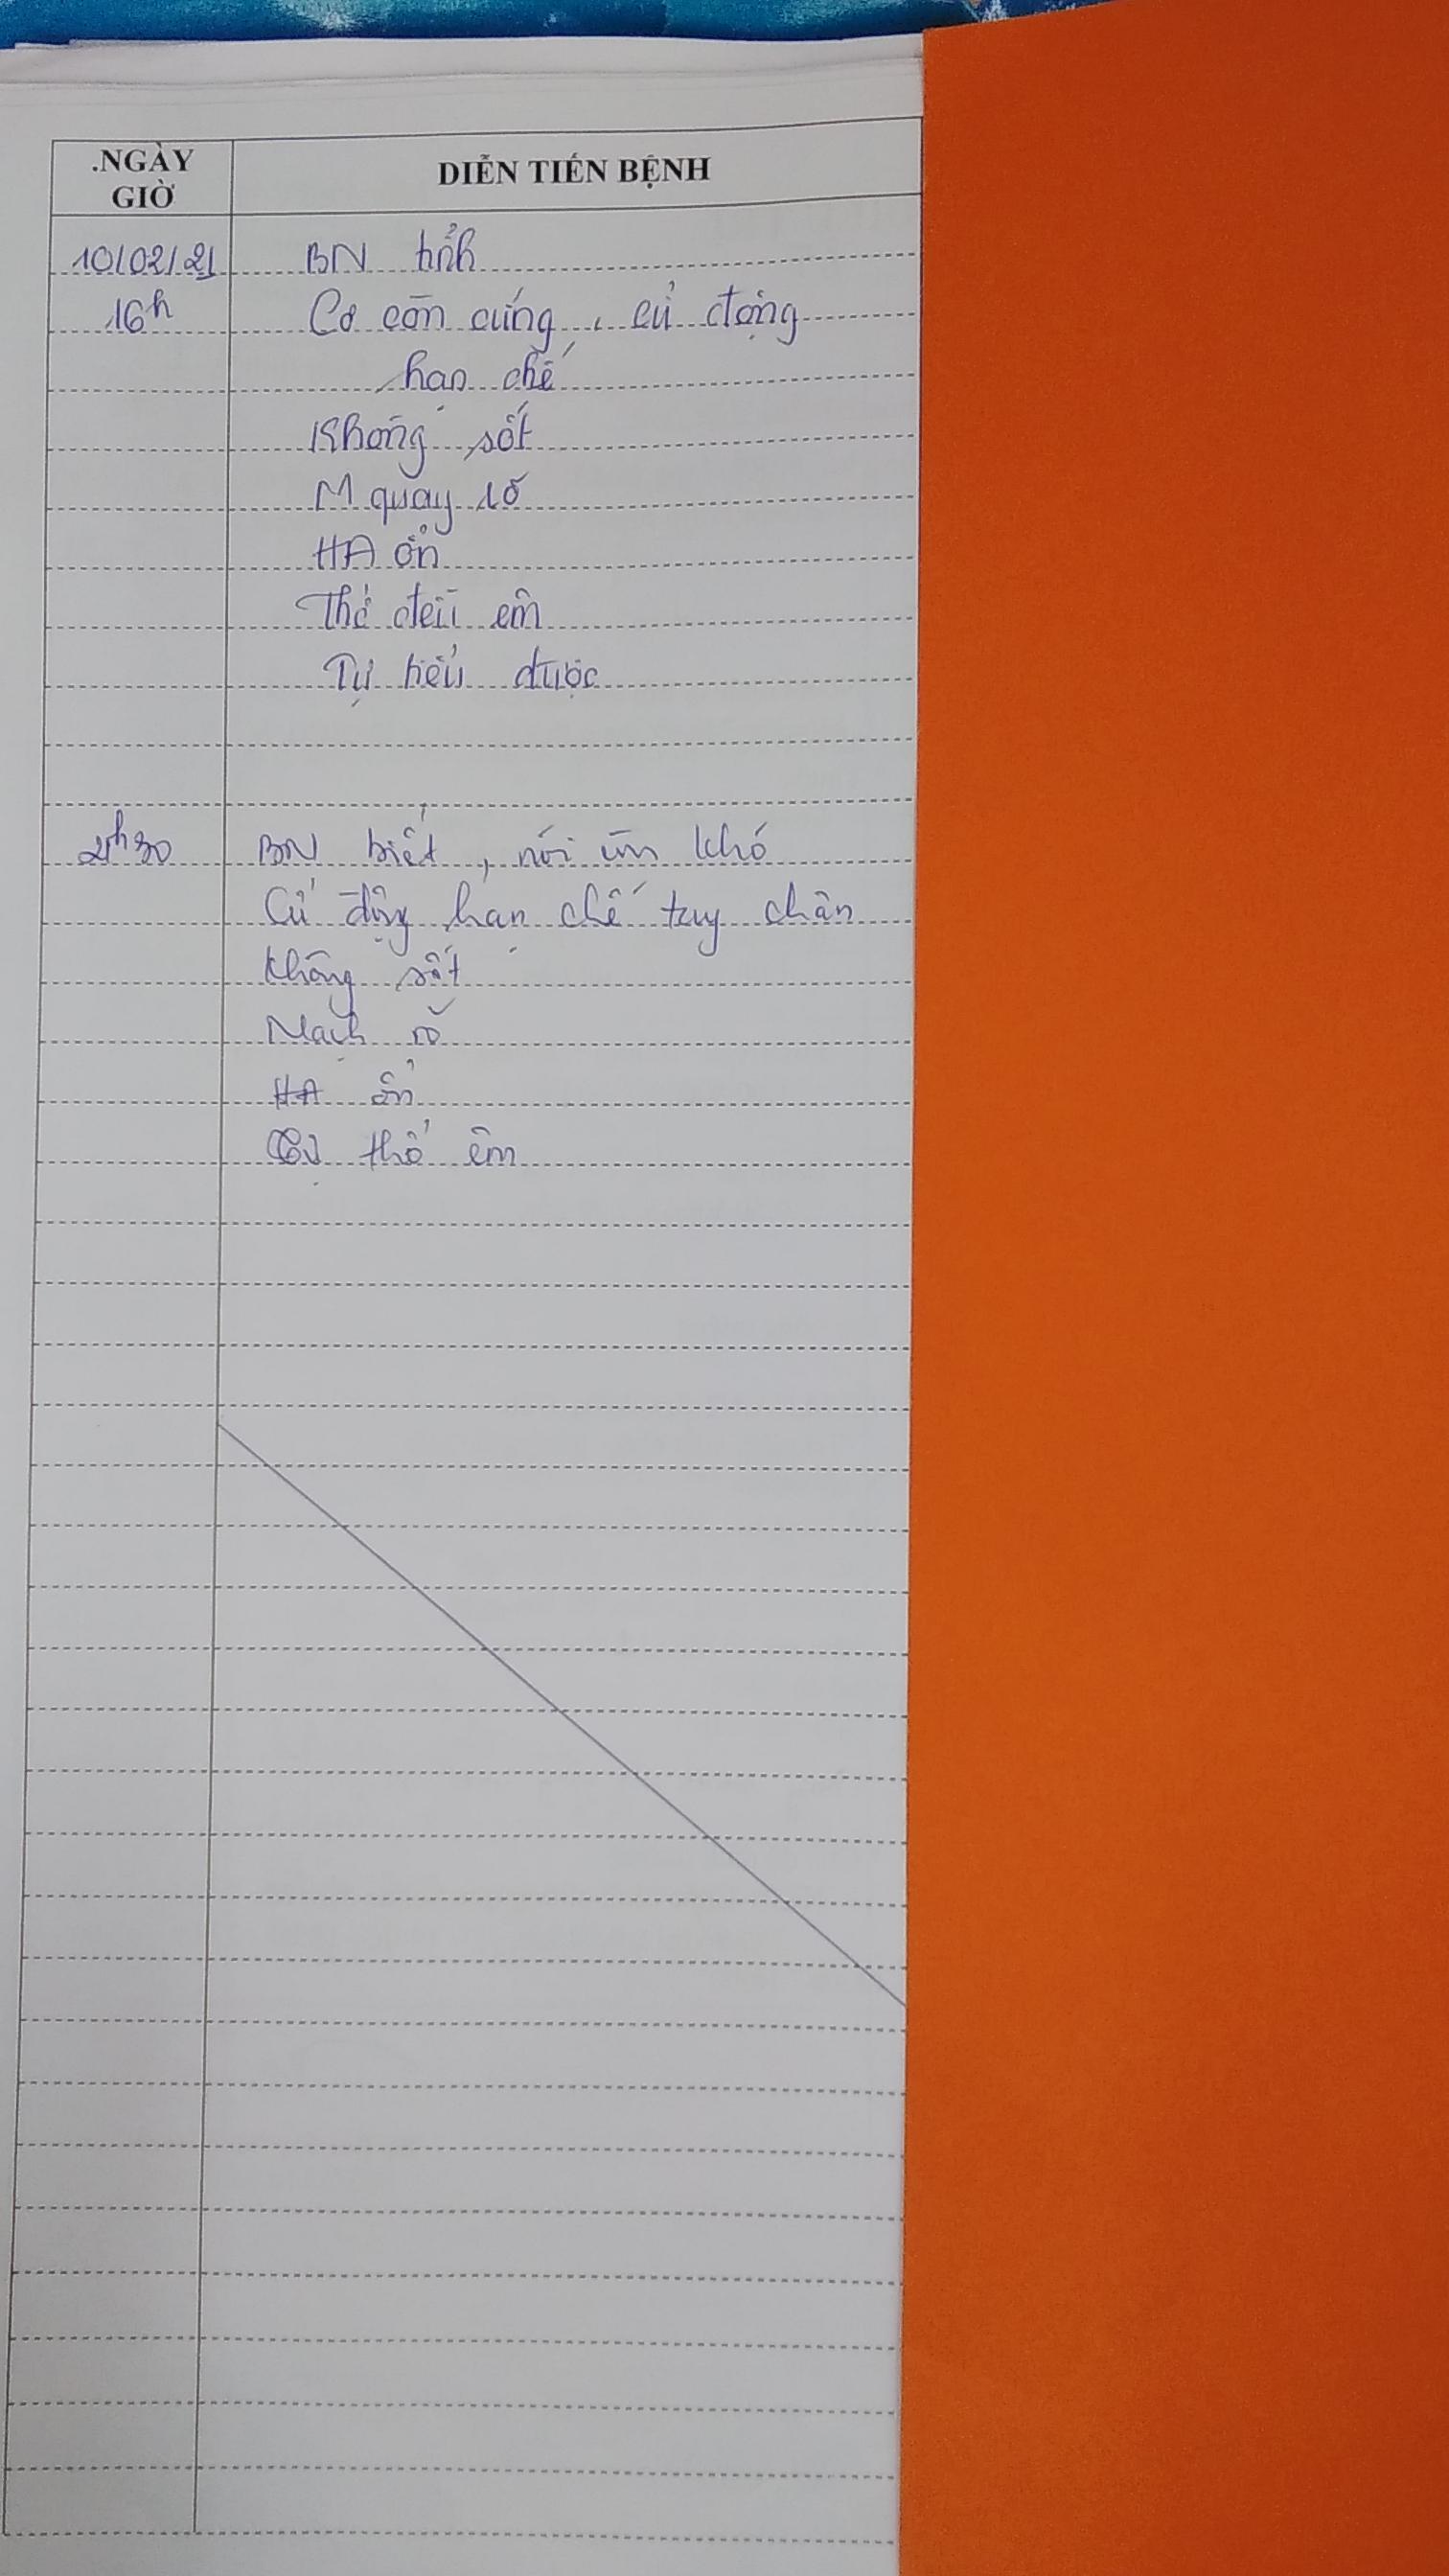 .NGÀY
GIỜ
DIỄN TIẾN BỆNH
10/02/21 BN tỉnh
16h Cơ còn cứng, cử động
hạn chế
Không sốt
M quay rõ
HA ổn
Thở đều êm
Tự tiểu được
21h30 BN biết, nói khó
Cử động hạn chế tay chân
Không sốt
Mạch rõ
HA ổn
thở êm